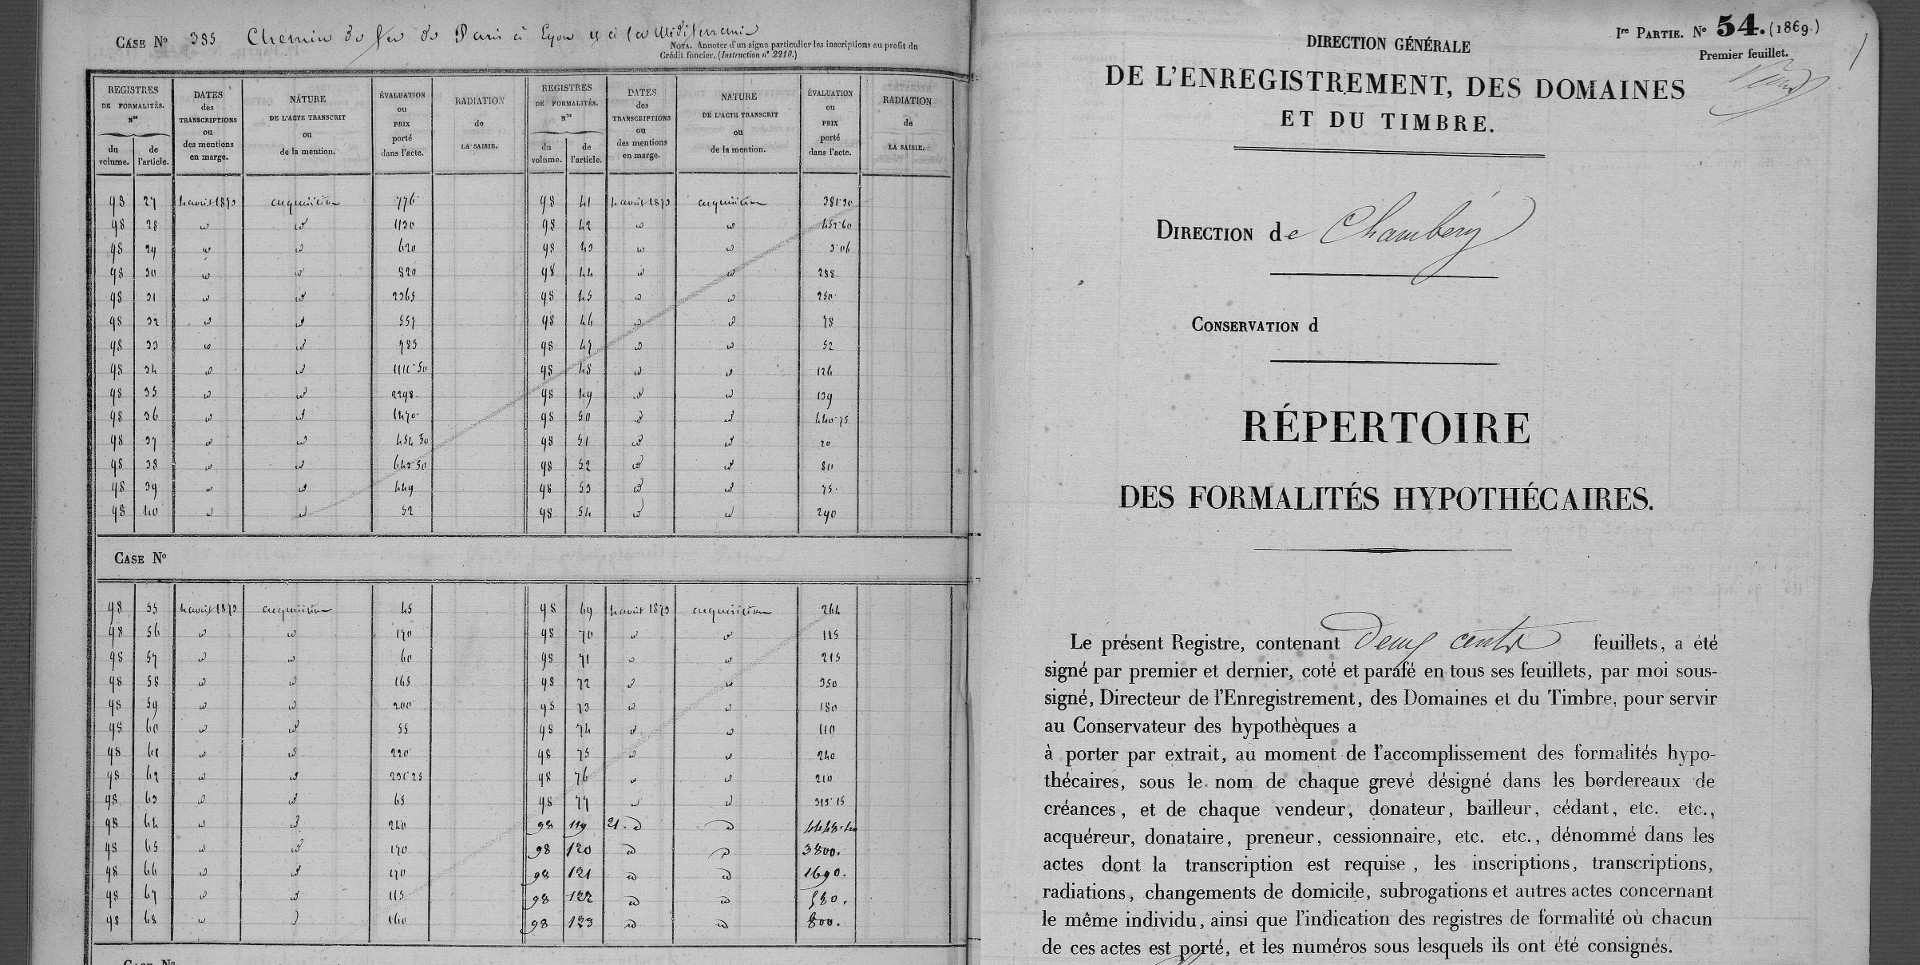 CASE No 385 Chemin de fer de Paris à Lyon et à la Méditerranée
NOTA. Annoter d'un signe particulier les inscriptions au profit du
Crédit foncier. (Instruction n° 2210.)
REGISTRES DE FORMALITÉS. Nos du volume. de l'article. DATES des TRANSCRIPTIONS ou des mentions en marge. NATURE DE L'ACTE TRANSCRIT ou de la mention. ÉVALUATION ou PRIX porté dans l'acte. RADIATION de LA SAISIE.
REGISTRES DE FORMALITÉS. Nos du volume. de l'article. DATES des TRANSCRIPTIONS ou des mentions en marge. NATURE DE L'ACTE TRANSCRIT ou de la mention. ÉVALUATION ou PRIX porté dans l'acte. RADIATION de LA SAISIE.
98 27 acquisition 776 98 41 acquisition
98 28 98 42
98 29 620 98 43
98 30 820 98 44 288
98 31 2265 98 45 250
98 32 557 98 46 78
98 33 785 98 47 52
98 34 98 48 126
98 35 2298 98 49 139
98 36 1470 98 50 440.75
98 37 98 51 20
98 38 98 52 80
98 39 449 98 53 75
98 40 52 98 54 290
CASE No
98 55 acquisition 45 98 69 acquisition 264
98 56 170 98 70 115
98 57 60 98 71 215
98 58 165 98 72 350
98 59 200 98 73 180
98 60 55 98 74 110
98 61 220 98 75 240
98 62 98 76 210
98 63 65 98 77
98 64 240 98 119 21
98 65 170 98 120 3800.
98 66 170 98 121 1690.
98 67 115 98 122
98 68 160 98 123 800.
CASE No
Ire PARTIE. No 54. (1869.)
Premier feuillet.
DIRECTION GÉNÉRALE
DE L'ENREGISTREMENT, DES DOMAINES
ET DU TIMBRE.
DIRECTION de Chambéry
CONSERVATION d
RÉPERTOIRE
DES FORMALITÉS HYPOTHÉCAIRES.
Le présent Registre, contenant Deux cents feuillets, a été
signé par premier et dernier, coté et parafé en tous ses feuillets, par moi sous-
signé, Directeur de l'Enregistrement, des Domaines et du Timbre, pour servir
au Conservateur des hypothèques a
à porter par extrait, au moment de l'accomplissement des formalités hypo-
thécaires, sous le nom de chaque grevé désigné dans les bordereaux de
créances, et de chaque vendeur, donateur, bailleur, cédant, etc. etc.,
acquéreur, donataire, preneur, cessionnaire, etc. etc., dénommé dans les
actes dont la transcription est requise, les inscriptions, transcriptions,
radiations, changements de domicile, subrogations et autres actes concernant
le même individu, ainsi que l'indication des registres de formalité où chacun
de ces actes est porté, et les numéros sous lesquels ils ont été consignés.